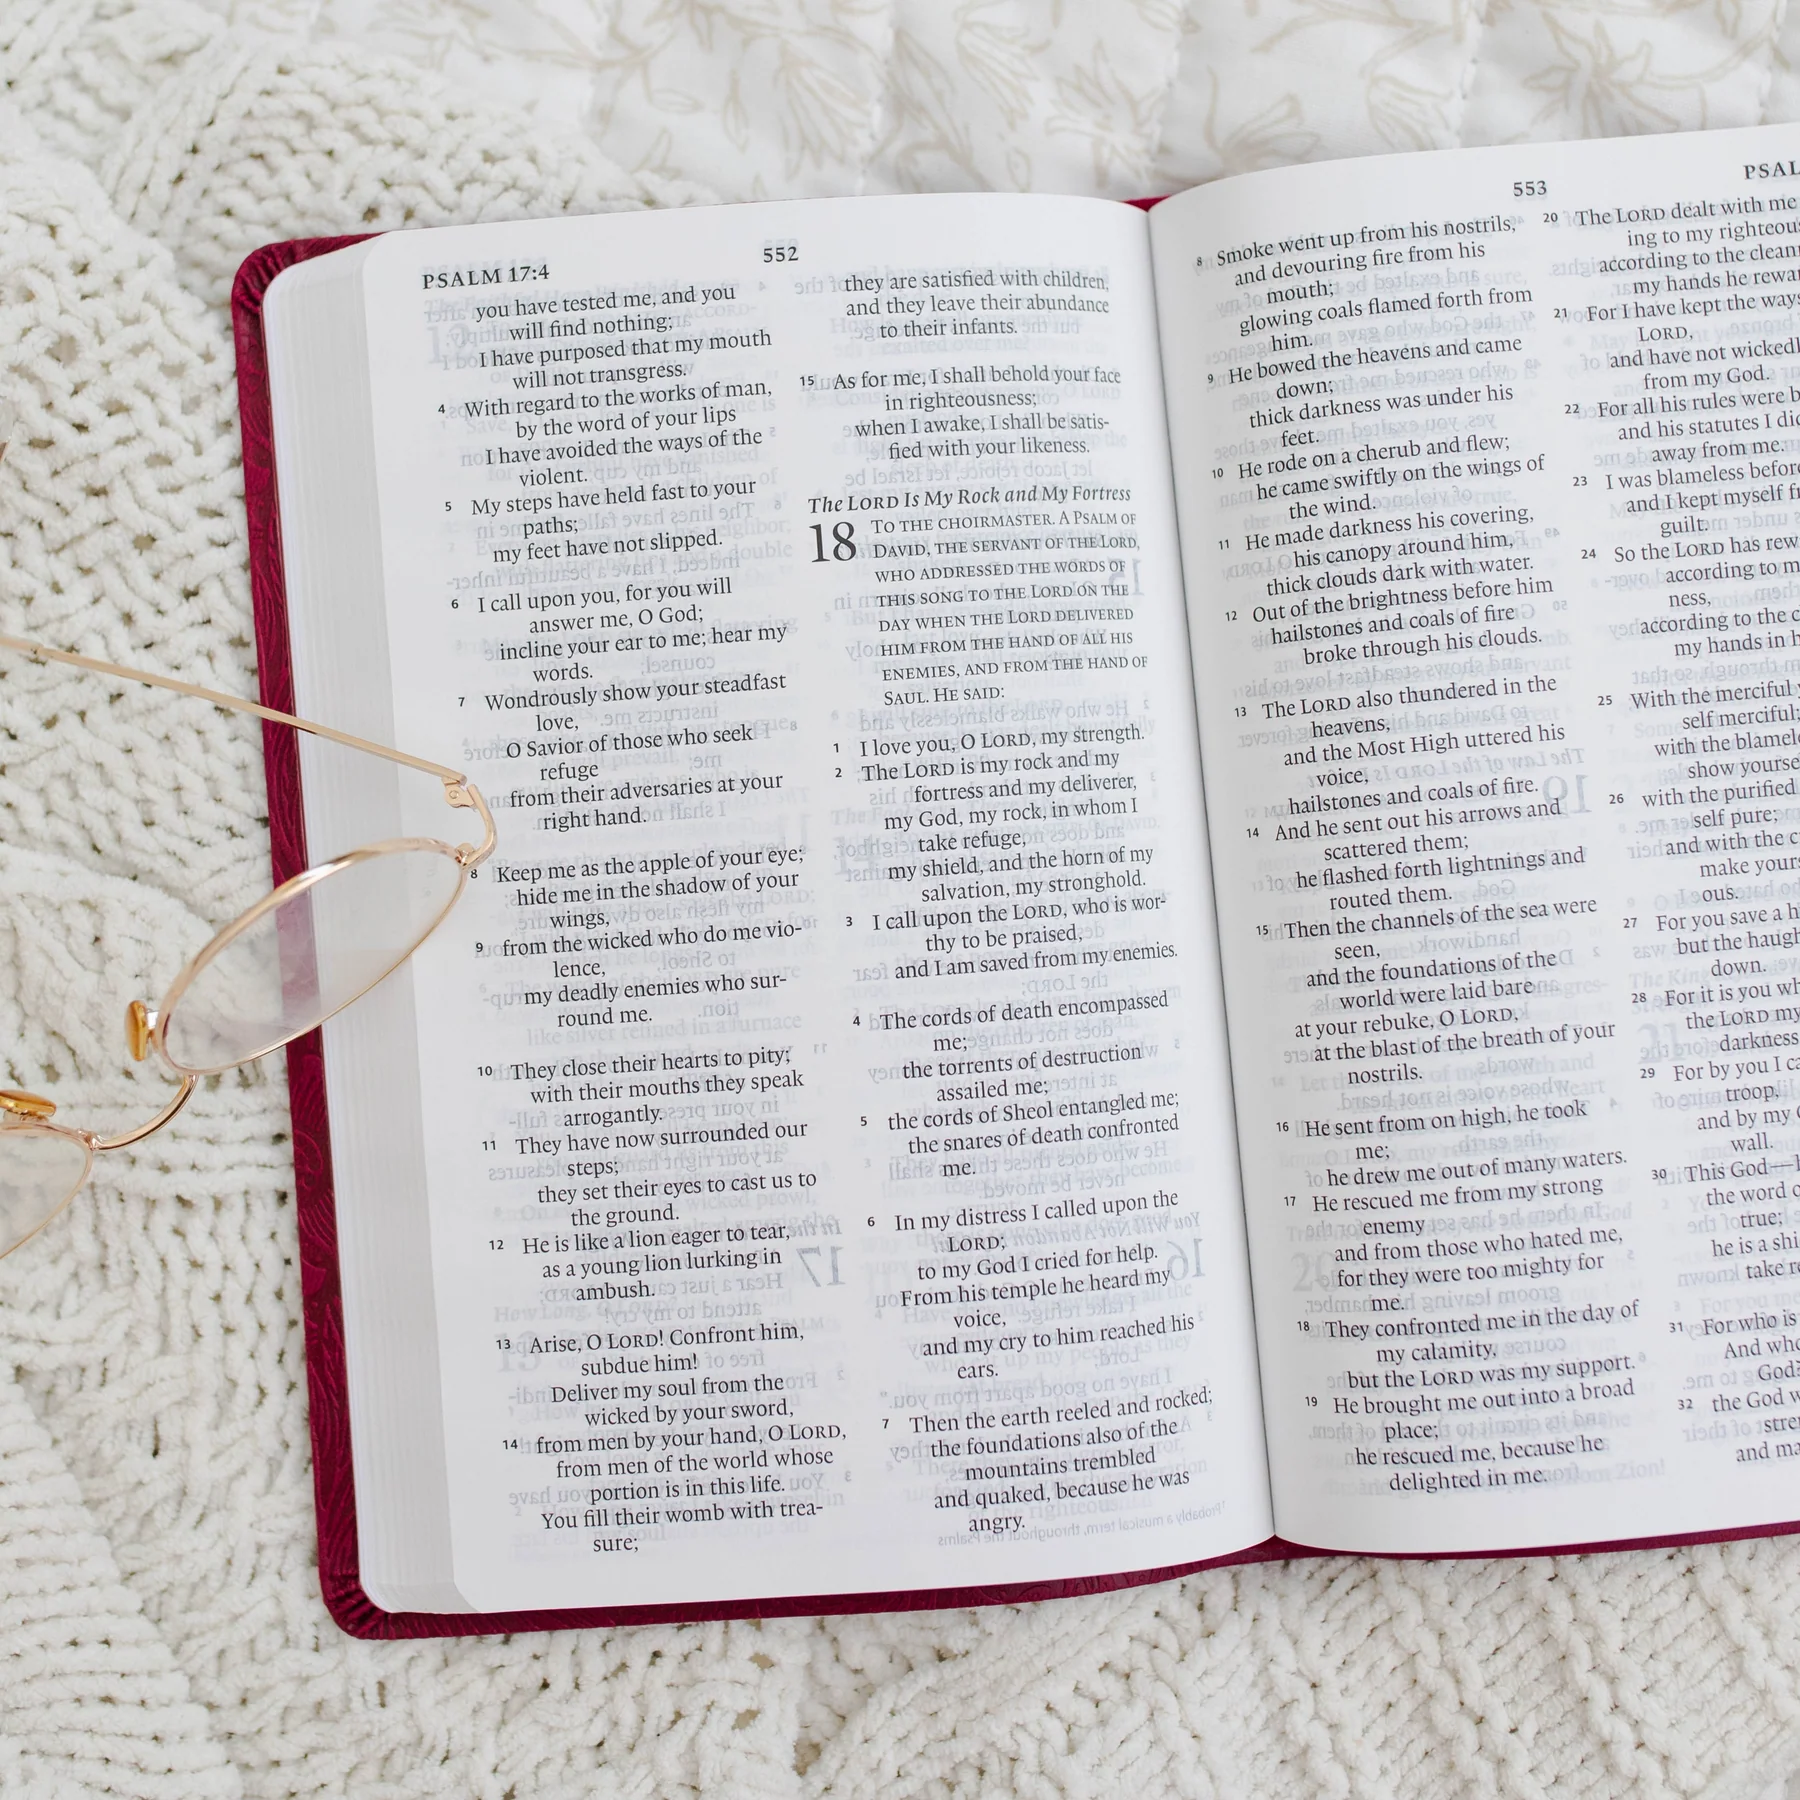 PSALM 17:4
552
you have tested me, and you
will find nothing;
I have purposed that my mouth
will not transgress.
4 With regard to the works of man,
by the word of your lips
I have avoided the ways of the
violent.
5 My steps have held fast to your
paths;
my feet have not slipped.
6 I call upon you, for you will
answer me, O God;
incline your ear to me; hear my
words.
7 Wondrously show your steadfast
love,
O Savior of those who seek
refuge
from their adversaries at your
right hand.
8 Keep me as the apple of your eye;
hide me in the shadow of your
wings,
9 from the wicked who do me vio-
lence,
my deadly enemies who sur-
round me.
10 They close their hearts to pity;
with their mouths they speak
arrogantly.
11 They have now surrounded our
steps;
they set their eyes to cast us to
the ground.
12 He is like a lion eager to tear,
as a young lion lurking in
ambush.
13 Arise, O LORD! Confront him,
subdue him!
Deliver my soul from the
wicked by your sword,
14 from men by your hand, O LORD,
from men of the world whose
portion is in this life.
You fill their womb with trea-
sure;
they are satisfied with children,
and they leave their abundance
to their infants.
15 As for me, I shall behold your face
in righteousness;
when I awake, I shall be satis-
fied with your likeness.
The LORD Is My Rock and My Fortress
18 TO THE CHOIRMASTER. A PSALM OF
DAVID, THE SERVANT OF THE LORD,
WHO ADDRESSED THE WORDS OF
THIS SONG TO THE LORD ON THE
DAY WHEN THE LORD DELIVERED
HIM FROM THE HAND OF ALL HIS
ENEMIES, AND FROM THE HAND OF
SAUL. HE SAID:
1 I love you, O LORD, my strength.
2 The LORD is my rock and my
fortress and my deliverer,
my God, my rock, in whom I
take refuge,
my shield, and the horn of my
salvation, my stronghold.
3 I call upon the LORD, who is wor-
thy to be praised,
and I am saved from my enemies.
4 The cords of death encompassed
me;
the torrents of destruction
assailed me;
5 the cords of Sheol entangled me;
the snares of death confronted
me.
6 In my distress I called upon the
LORD;
to my God I cried for help.
From his temple he heard my
voice,
and my cry to him reached his
ears.
7 Then the earth reeled and rocked;
the foundations also of the
mountains trembled
and quaked, because he was
angry.
553
PSAL
8 Smoke went up from his nostrils,
and devouring fire from his
mouth;
glowing coals flamed forth from
him.
9 He bowed the heavens and came
down;
thick darkness was under his
feet.
10 He rode on a cherub and flew;
he came swiftly on the wings of
the wind.
11 He made darkness his covering,
his canopy around him,
thick clouds dark with water.
12 Out of the brightness before him
hailstones and coals of fire
broke through his clouds.
13 The LORD also thundered in the
heavens,
and the Most High uttered his
voice,
hailstones and coals of fire.
14 And he sent out his arrows and
scattered them;
he flashed forth lightnings and
routed them.
15 Then the channels of the sea were
seen,
and the foundations of the
world were laid bare
at your rebuke, O LORD,
at the blast of the breath of your
nostrils.
16 He sent from on high, he took
me;
he drew me out of many waters.
17 He rescued me from my strong
enemy
and from those who hated me,
for they were too mighty for
me.
18 They confronted me in the day of
my calamity,
but the LORD was my support.
19 He brought me out into a broad
place;
he rescued me, because he
delighted in me.
20 The LORD dealt with me
ing to my righteou
according to the clean
my hands he rewa
21 For I have kept the ways
LORD,
and have not wickedl
from my God.
22 For all his rules were b
and his statutes I di
away from me.
23 I was blameless before
and I kept myself f
guilt.
24 So the LORD has rew
according to m
ness,
according to the c
my hands in h
25 With the merciful
self merciful;
with the blamel
show yourse
26 with the purified
self pure;
and with the c
make yours
ous.
27 For you save a h
but the haugh
down.
28 For it is you wh
the LORD my
darkness
29 For by you I ca
troop,
and by my
wall.
30 This God—
the word o
true;
he is a shi
take re
31 For who is
And who
God?
32 the God w
stren
and ma